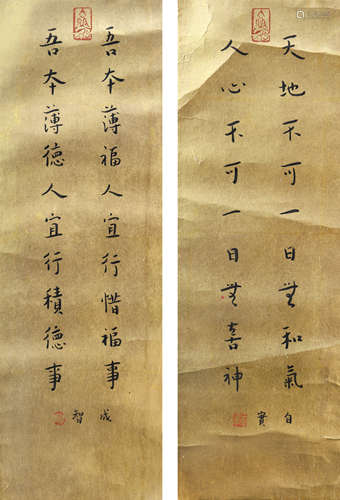 天地不可一日無和氣
人心不可一日無喜神
自實
吾本薄福人宜行惜福事
吾本薄德人宜行積德事
成智